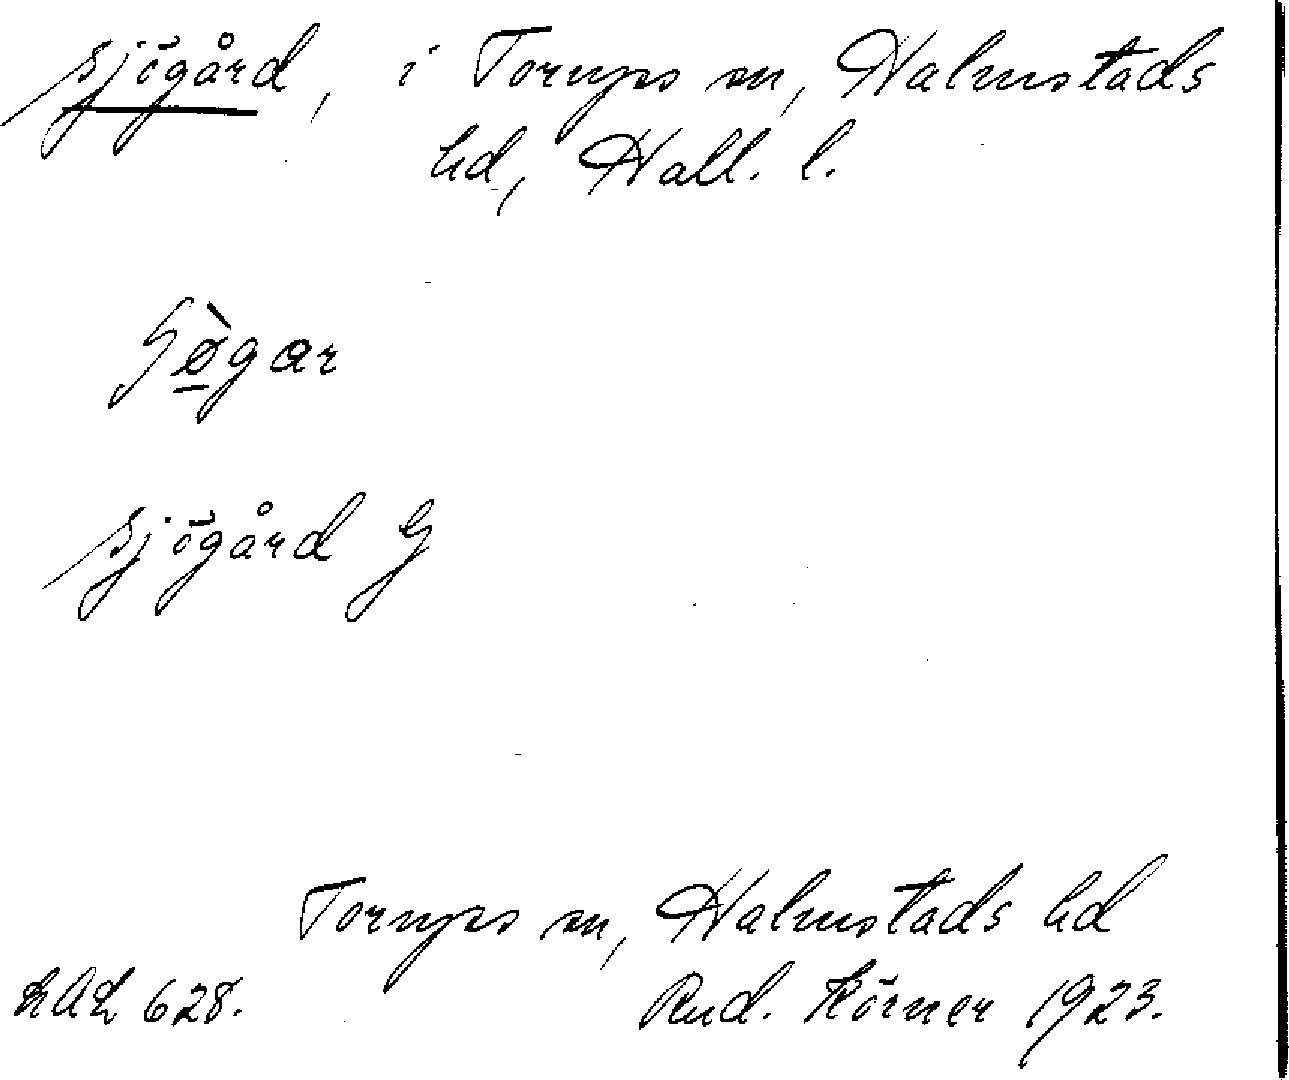 Sjögård, i Torups sn, Halmstads
hd, Hall. l.
sjögård G
Torups sn, Halmstads hd
LAL 628.
Rud. Körner 1923.